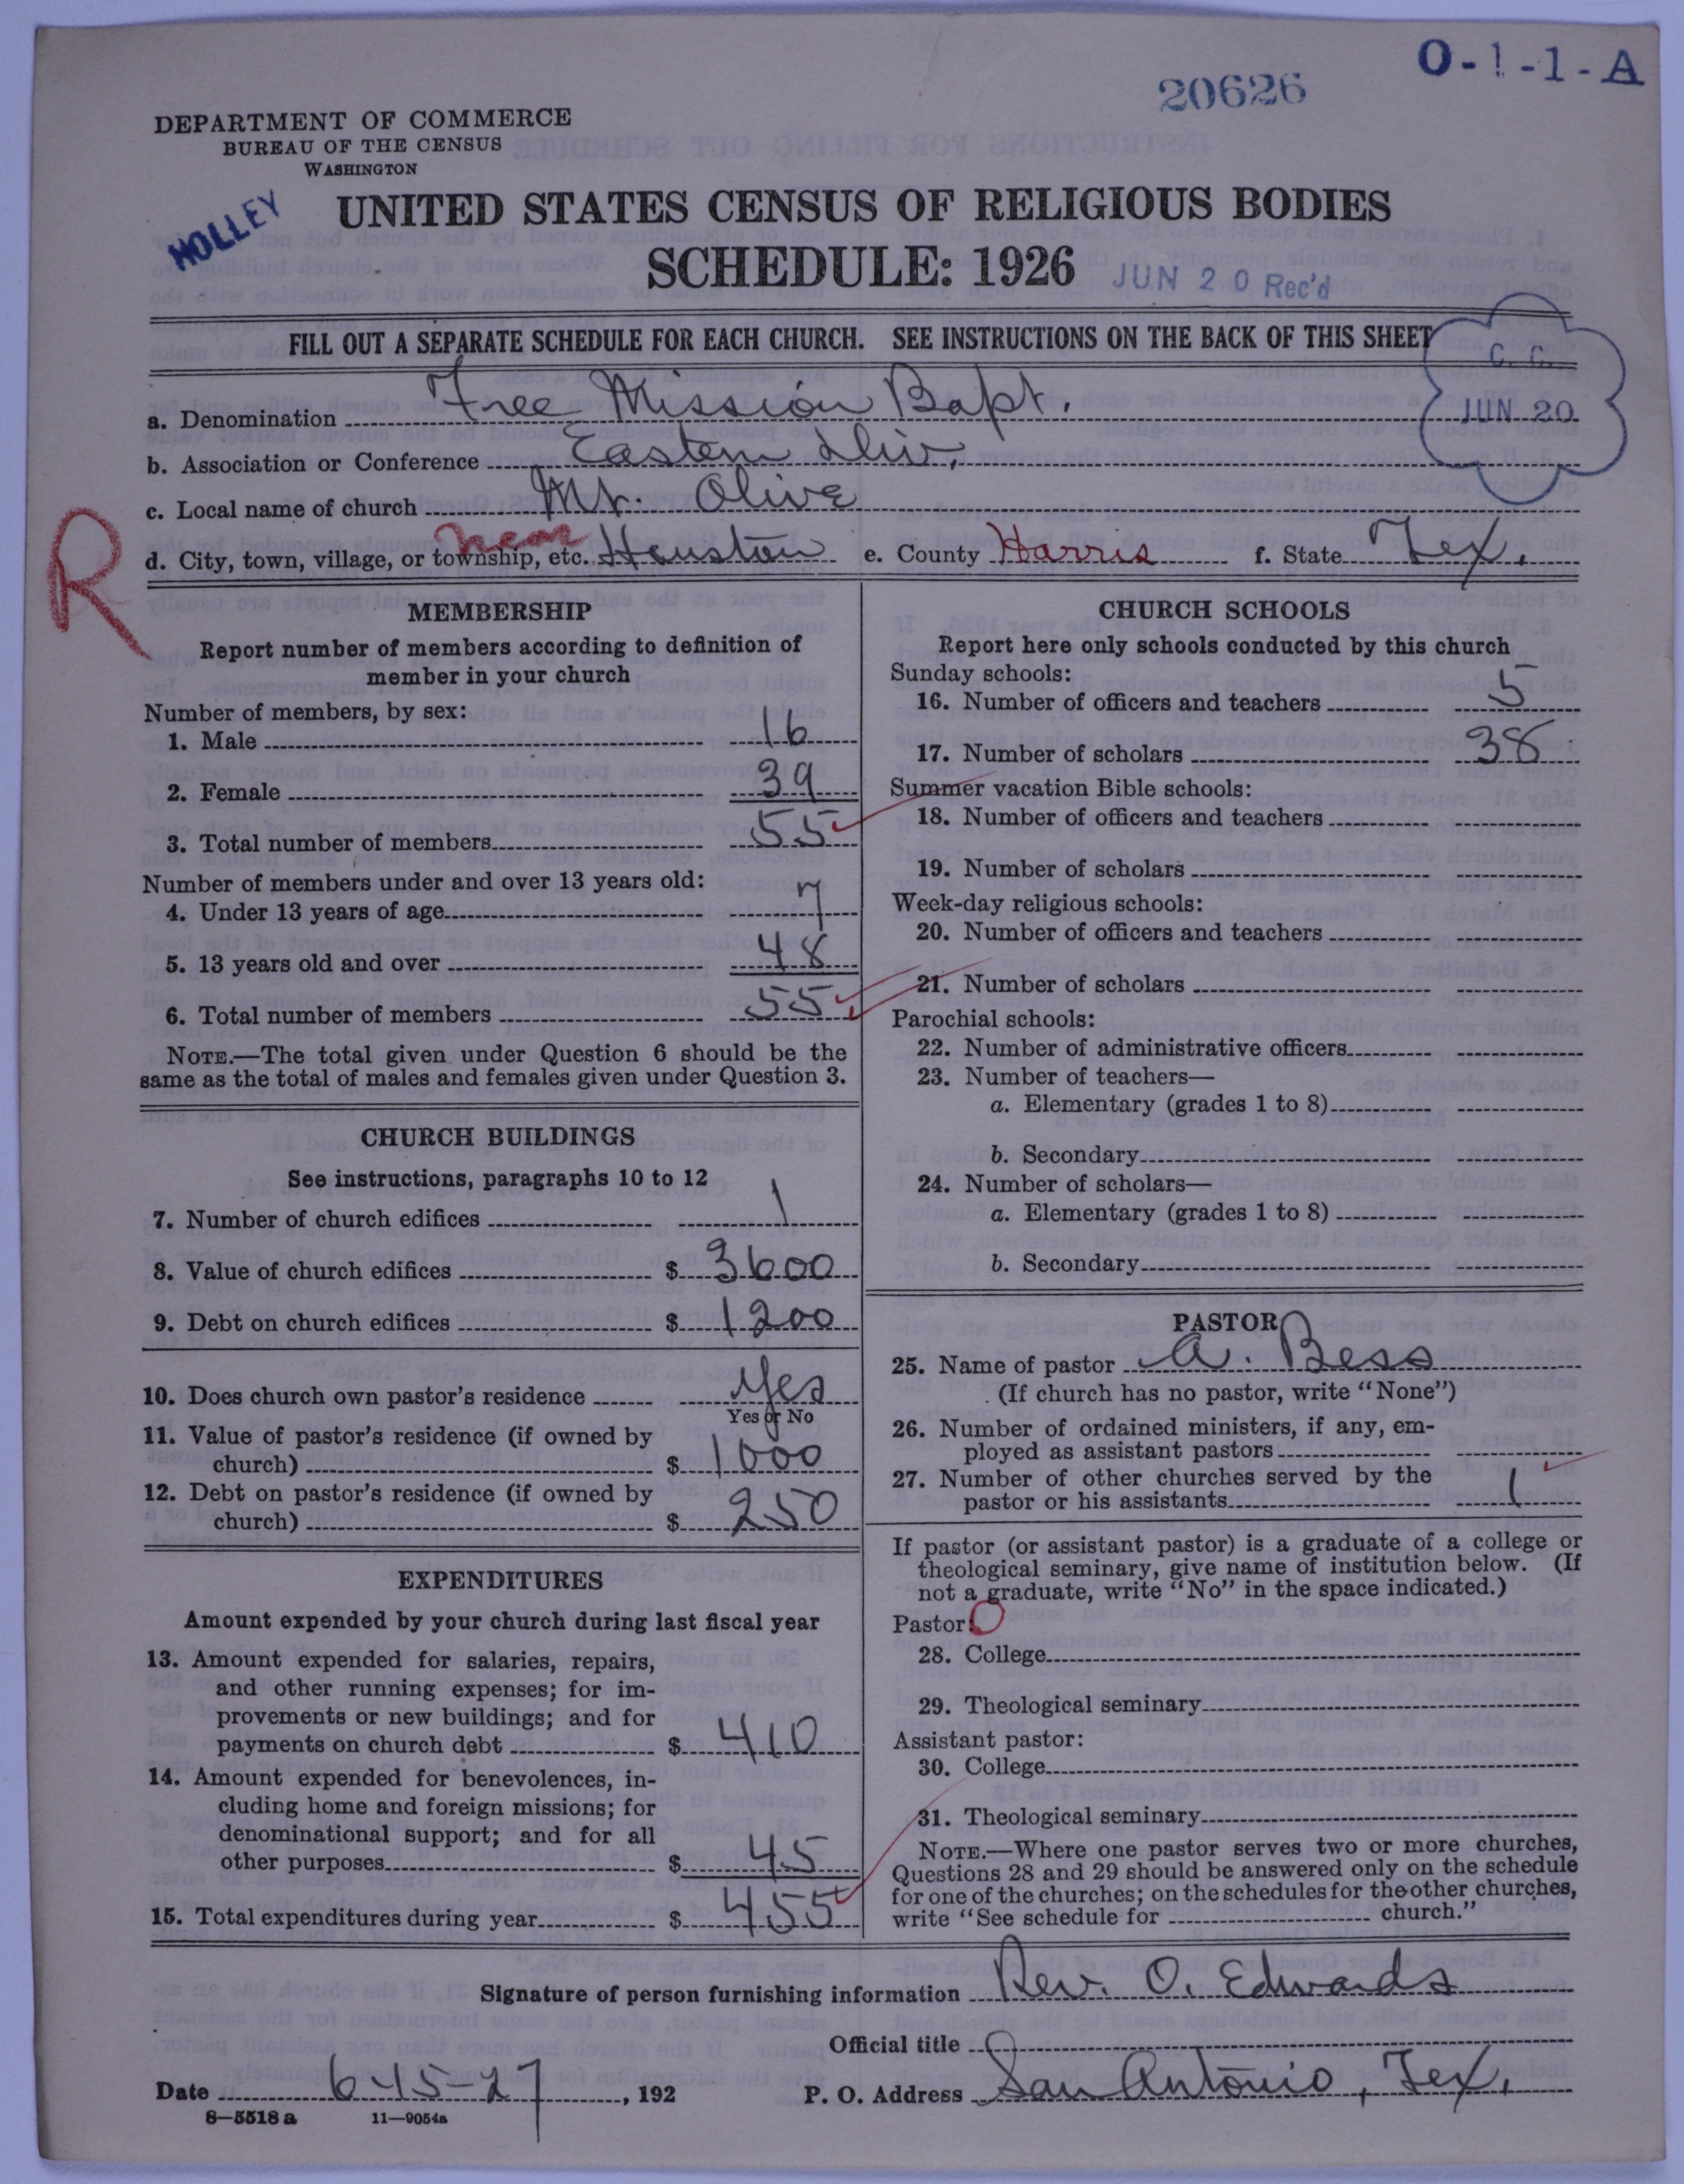 O-1-1-A
20626
DEPARTMENT OF COMMERCE
BUREAU OF THE CENSUS
WASHINGTON
HOLLEY
UNITED STATES CENSUS OF RELIGIOUS BODIES
SCHEDULE: 1926
JUN 20 Rec'd
FILL OUT A SEPARATE SCHEDULE FOR EACH CHURCH. SEE INSTRUCTIONS ON THE BACK OF THIS SHEET
C. C.
JUN 20
a. Denomination Free Mission Bapt.
b. Association or Conference Eastern Div.
c. Local name of church Mt. Olive
R
d. City, town, village, or township, etc. near Houston e. County Harris f. State Tex.
MEMBERSHIP
Report number of members according to definition of
member in your church
Number of members, by sex:
1. Male 16
2. Female 39
3. Total number of members 55
Number of members under and over 13 years old:
4. Under 13 years of age 7
5. 13 years old and over 48
6. Total number of members 55
NOTE.—The total given under Question 6 should be the
same as the total of males and females given under Question 3.
CHURCH BUILDINGS
See instructions, paragraphs 10 to 12
7. Number of church edifices 1
8. Value of church edifices $ 3600
9. Debt on church edifices $ 1200
10. Does church own pastor's residence Yes
Yes or No
11. Value of pastor's residence (if owned by
church) $ 1000
12. Debt on pastor's residence (if owned by
church) $ 250
EXPENDITURES
Amount expended by your church during last fiscal year
13. Amount expended for salaries, repairs,
and other running expenses; for im-
provements or new buildings; and for
payments on church debt $ 410
14. Amount expended for benevolences, in-
cluding home and foreign missions; for
denominational support; and for all
other purposes $ 45
15. Total expenditures during year $ 455
CHURCH SCHOOLS
Report here only schools conducted by this church
Sunday schools:
16. Number of officers and teachers 5
17. Number of scholars 38
Summer vacation Bible schools:
18. Number of officers and teachers
19. Number of scholars
Week-day religious schools:
20. Number of officers and teachers
21. Number of scholars
Parochial schools:
22. Number of administrative officers
23. Number of teachers—
a. Elementary (grades 1 to 8)
b. Secondary
24. Number of scholars—
a. Elementary (grades 1 to 8)
b. Secondary
PASTOR
25. Name of pastor A. Bess
(If church has no pastor, write "None")
26. Number of ordained ministers, if any, em-
ployed as assistant pastors
27. Number of other churches served by the
pastor or his assistants 1
If pastor (or assistant pastor) is a graduate of a college or
theological seminary, give name of institution below. (If
not a graduate, write "No" in the space indicated.)
Pastor: O
28. College
29. Theological seminary
Assistant pastor:
30. College
31. Theological seminary
NOTE.—Where one pastor serves two or more churches,
Questions 28 and 29 should be answered only on the schedule
for one of the churches; on the schedules for the other churches,
write "See schedule for church."
Signature of person furnishing information Rev. O. Edwards
Official title
Date 6-15-27, 192 P. O. Address San Antonio, Tex.
8—5518 a 11—9054a